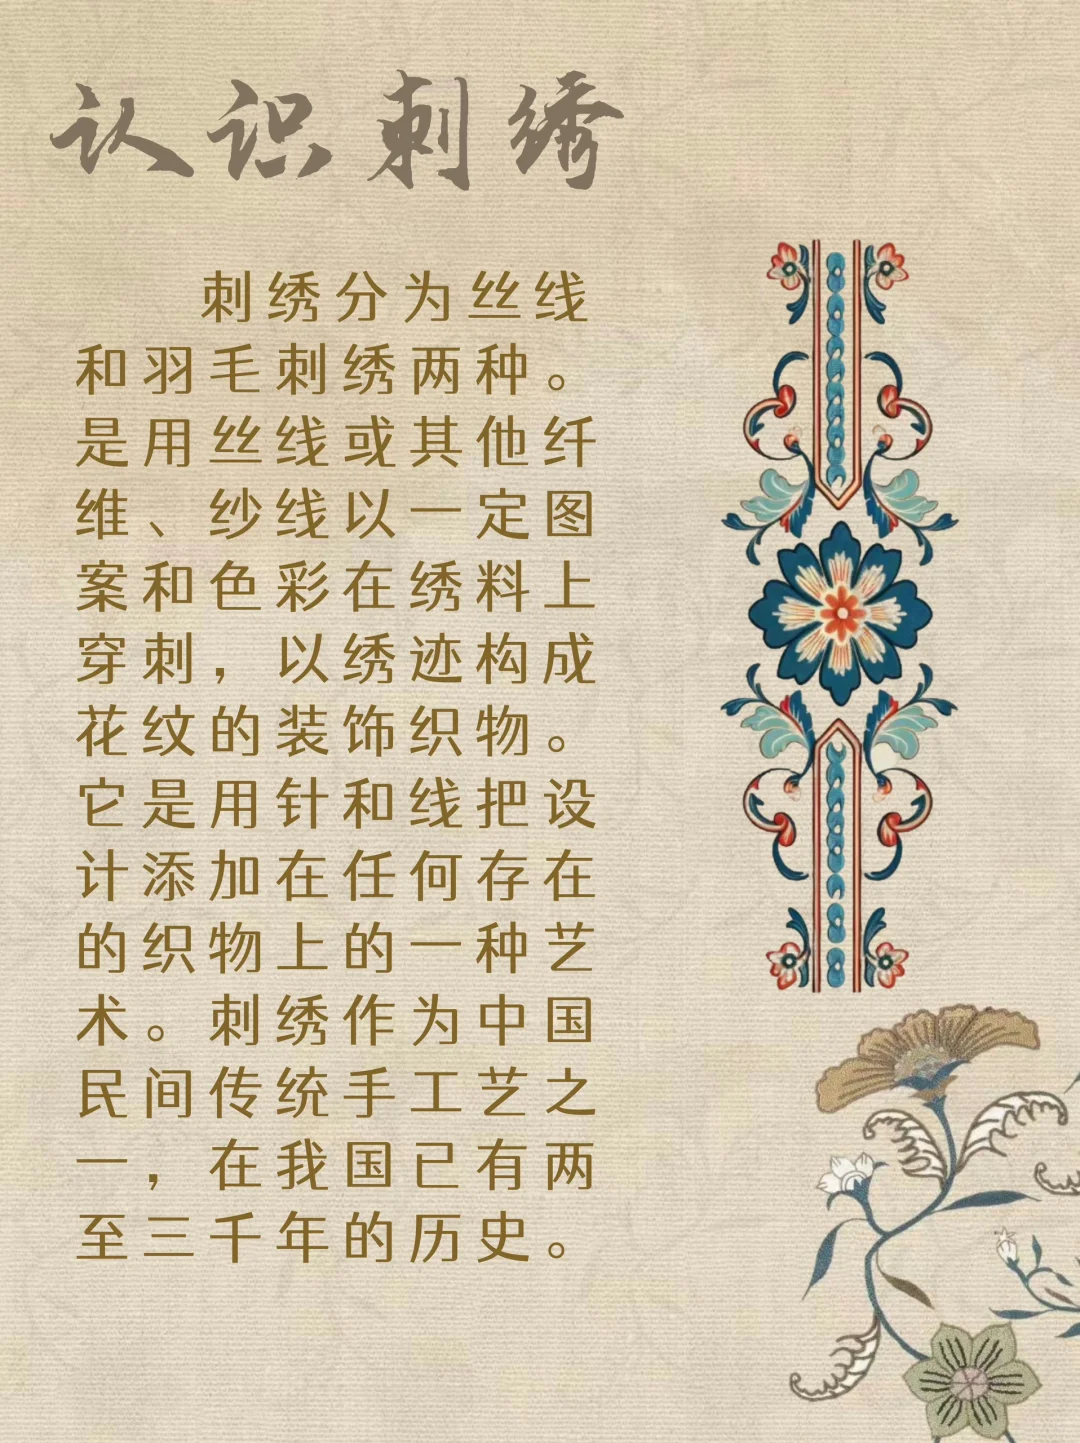 认识刺绣
刺绣分为丝线
和羽毛刺绣两种。
是用丝线或其他纤
维、纱线以一定图
案和色彩在绣料上
穿刺，以绣迹构成
花纹的装饰织物。
它是用针和线把设
计添加在任何存在
的织物上的一种艺
术。刺绣作为中国
民间传统手工艺之
一，在我国已有两
至三千年的历史。